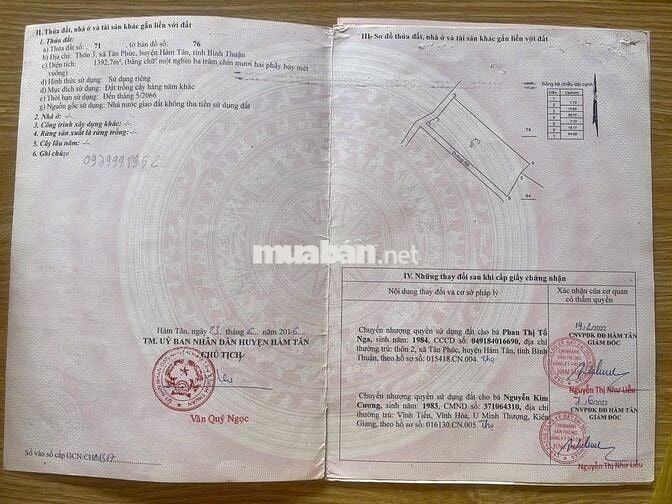 II. Thửa đất, nhà ở và tài sản khác gắn liền với đất
1. Thửa đất:
a) Thửa đất số: 71, tờ bản đồ số: 76
b) Địa chỉ: Thôn 3, xã Tân Phúc, huyện Hàm Tân, tỉnh Bình Thuận
c) Diện tích: 1392,7m², (bằng chữ: một nghìn ba trăm chín mươi hai phẩy bảy mét
vuông)
d) Hình thức sử dụng: Sử dụng riêng
đ) Mục đích sử dụng: Đất trồng cây hàng năm khác
e) Thời hạn sử dụng: Đến tháng 5/2066
g) Nguồn gốc sử dụng: Nhà nước giao đất không thu tiền sử dụng đất
2. Nhà ở: -/-
3. Công trình xây dựng khác: -/-
4. Rừng sản xuất là rừng trồng: -/-
5. Cây lâu năm: -/-
6. Ghi chú:
Hàm Tân, ngày 23 tháng 6 năm 2016
TM. UỶ BAN NHÂN DÂN HUYỆN HÀM TÂN
CHỦ TỊCH
Văn Quý Ngọc
Số vào sổ cấp GCN:CH01317
muaban.net
III. Sơ đồ thửa đất, nhà ở và tài sản khác gắn liền với đất
Bảng kê chiều dài cạnh
74
84
IV. Những thay đổi sau khi cấp giấy chứng nhận
Nội dung thay đổi và cơ sở pháp lý
Xác nhận của cơ quan
có thẩm quyền
Chuyển nhượng quyền sử dụng đất cho bà Phan Thị Tố
Nga, sinh năm: 1984, CCCD số 049184016690, địa chỉ
thường trú: thôn 2, xã Tân Phúc, huyện Hàm Tân, tỉnh Bình
Thuận, theo hồ sơ số: 015418.CN.004.
19/2/2022
CNVPĐK ĐĐ HÀM TÂN
GIÁM ĐỐC
Nguyễn Thị Như Liễu
Chuyển nhượng quyền sử dụng đất cho bà Nguyễn Kim
Cương, sinh năm: 1983, CMND số: 371064310, địa chỉ
thường trú: Vĩnh Tiến, Vĩnh Hòa, U Minh Thượng, Kiên
Giang, theo hồ sơ số: 016130.CN.005.
7/6/2022
CNVPĐK ĐĐ HÀM TÂN
GIÁM ĐỐC
Nguyễn Thị Như Liễu